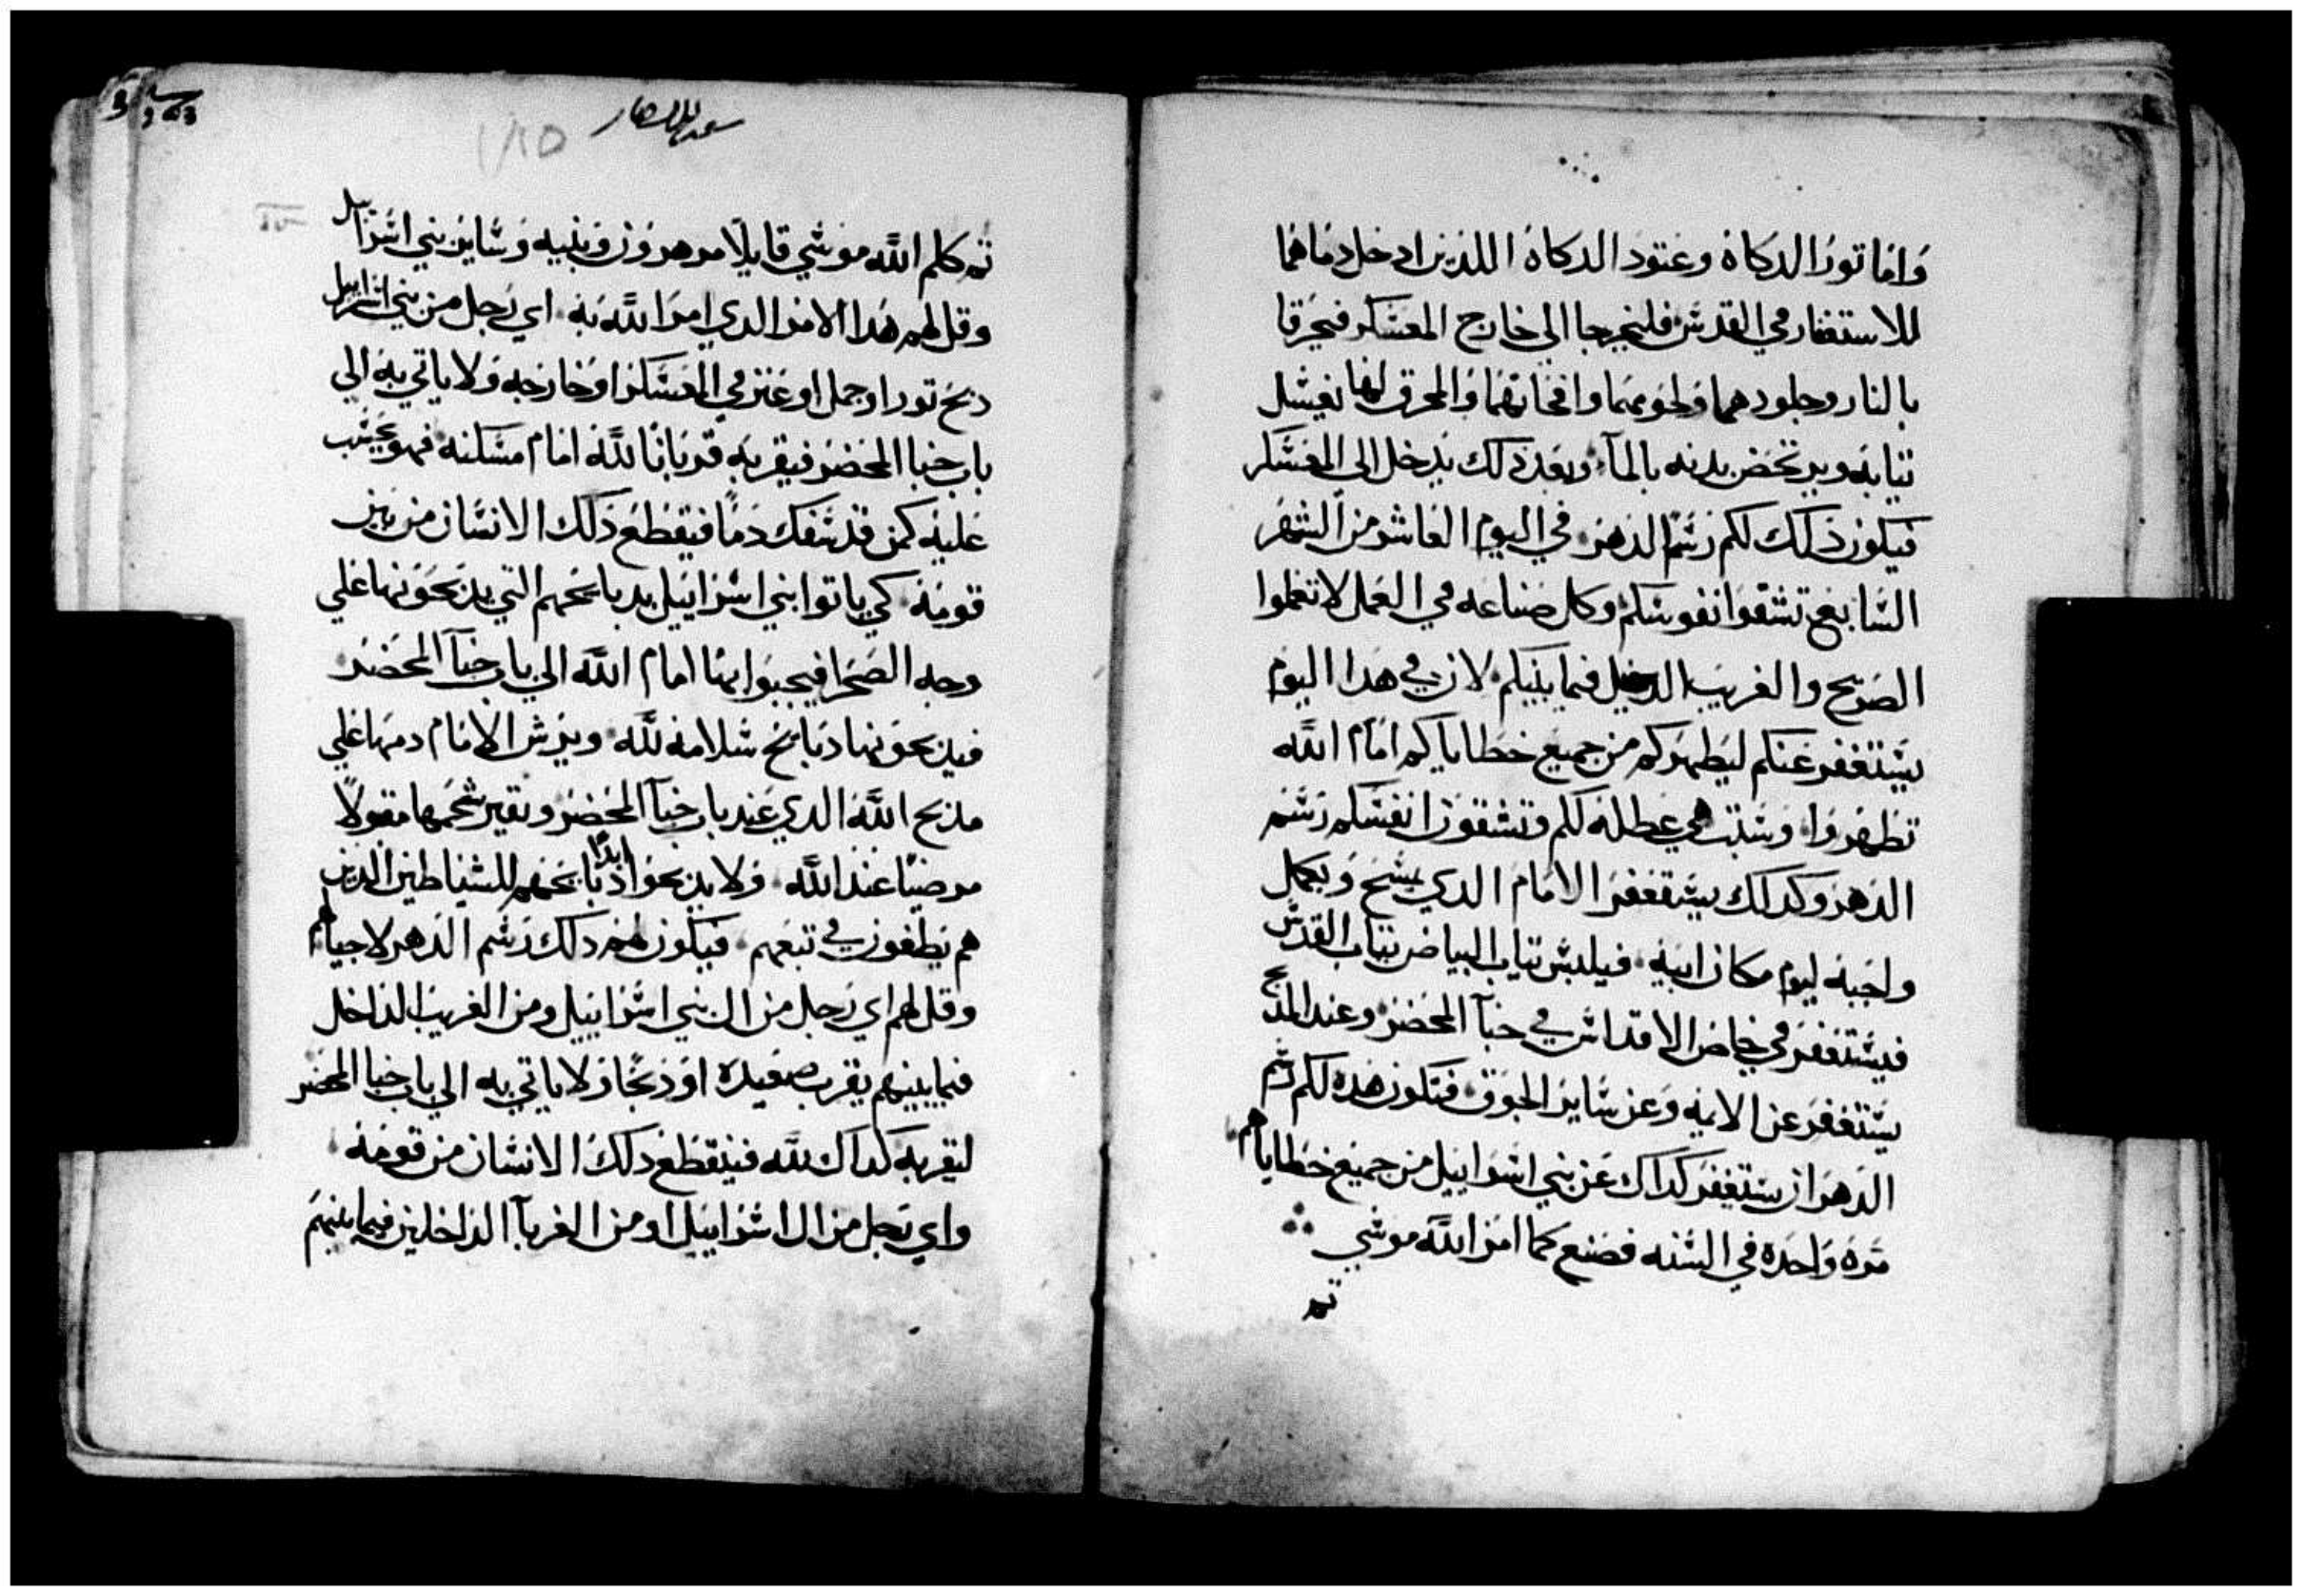 وَامَّا تورُ الدكاةِ وعتود الدكاهُ اللذين ادخل دمَاهُما
للاستغفار في القدسّ فليخرجا الي خارج المعسّكر فيحرقا
بالنار وجلودهما ولحومهما وافحاتهُما وَالمحرق لهَا يغسّل
تيابهُ ويرتحَض بدنه بالمآء وبعَد ذلك يدخل الى المعَسّكر
فيكون ذَلك لكم رسّم الدهرَ في اليوم العَاشر من الشهر
السّابع تشقوَا نفوسّكم وكل صناعه في العَمل لا تعَملوا
الصَريح والغريبُ الدخيل فيما بينكم لان في هَدا اليوم
يسّتغفر عَنكم ليَطهرَكم من جميع خطاياكم امَام اللَّه
تطهرُوا وسّبت هي عَطله لكم وتشقون انفسّكم رسّم
الدَهرَ وكدلك يسّتغفرَ الامَام الدي يمسَح وَيكمل
واجَبهُ ليوم مكان ابيه فيلبسّ تياب البياض تياب القدسّ
فيسّتغفرَ في خاصَ الاقداسّ في خبآ المحضر وعند المدبح
يسّتغفرَ عن الايمه وَعن سّاير الجوَق فتكون هَده لكم رسّم
الدَهرَ ان يسّتغفرَ كداك عَن بني اسّرَاييل من جميعَ خطاياهم
مَرهُ وَاحدَه في السّنه فصَنع كما امرَ اللَّه موسّي
تم
١٨٥
تم كلم اللَّه موسّي قايلاً مر هرون وَبنيه وَسّاير بني اسّرَاييل
وقل لهم هَدا الامرَ الدي امرَ اللَّه به اي رَجل من بني اسراييل
دبَح تورا او حمل او عَنز في المعَسّكر او خارجَه وَلا ياتي به الي
باب خبا المحضرَ فيقربه قربَانًا للَّه امَام مسّكنه فهو يحسّب
عَليه كمن قد سّفك دَمًا فيقطَع ذَلك الانسّان من بين
قومه كي ياتوا بني اسّرَاييل بدبايحهم التي يدبَحوَنها عَلي
وجه الصَحرَا فيجيبوا بها امَام اللَّه الي باب خبآ المحَضرَ
فيدبحوَنها دبَايح سّلامه للَّه ويرَش الامَام دمهَا عَلي
مدبح اللَّه الدي عَند باب خبآ المحضرَ ويقير شحمها مقبولاً
مرضيًا عند اللَّه وَلا يدبحوَا ابدًا دبَايحَهم للشيَاطين الدين
هم يطغون في تبعَهم فيكون لهم دلك رَسّم الدهر لاجيالهم
وقل لهم اي رَجل من ال بني اسّرَاييل ومن الغريبُ الداخل
فيما بينهم يقرب صَعيدَه اوَ دبحًا وَلا ياتي به الي باب خبا المحضر
ليقربه كداك للَّه فينقطَع دلك الانسّان من قومه
واي رَجل من ال اسّرَاييل او من الغربآ الدَاخلين فيما بينهم